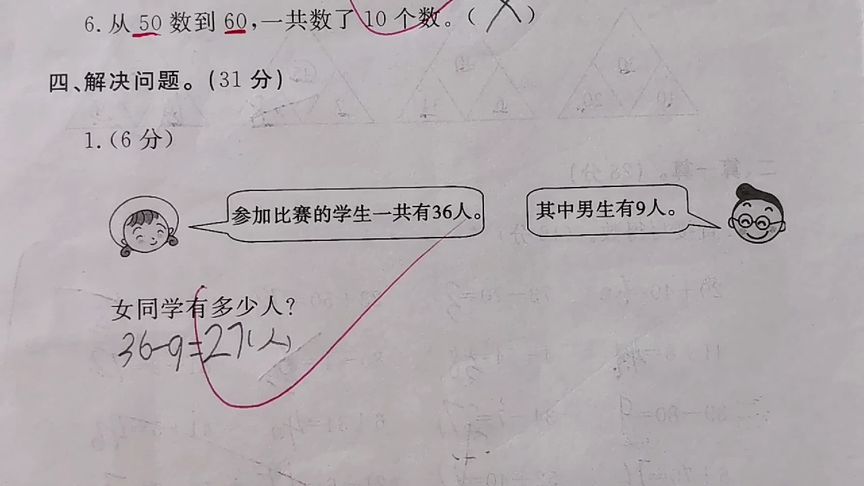 6. 从 50 数到 60，一共数了 10 个数。（ X ）
四、解决问题。(31 分)
1.（6 分）
参加比赛的学生一共有36人。
其中男生有9人。
女同学有多少人？
36-9=27(人)